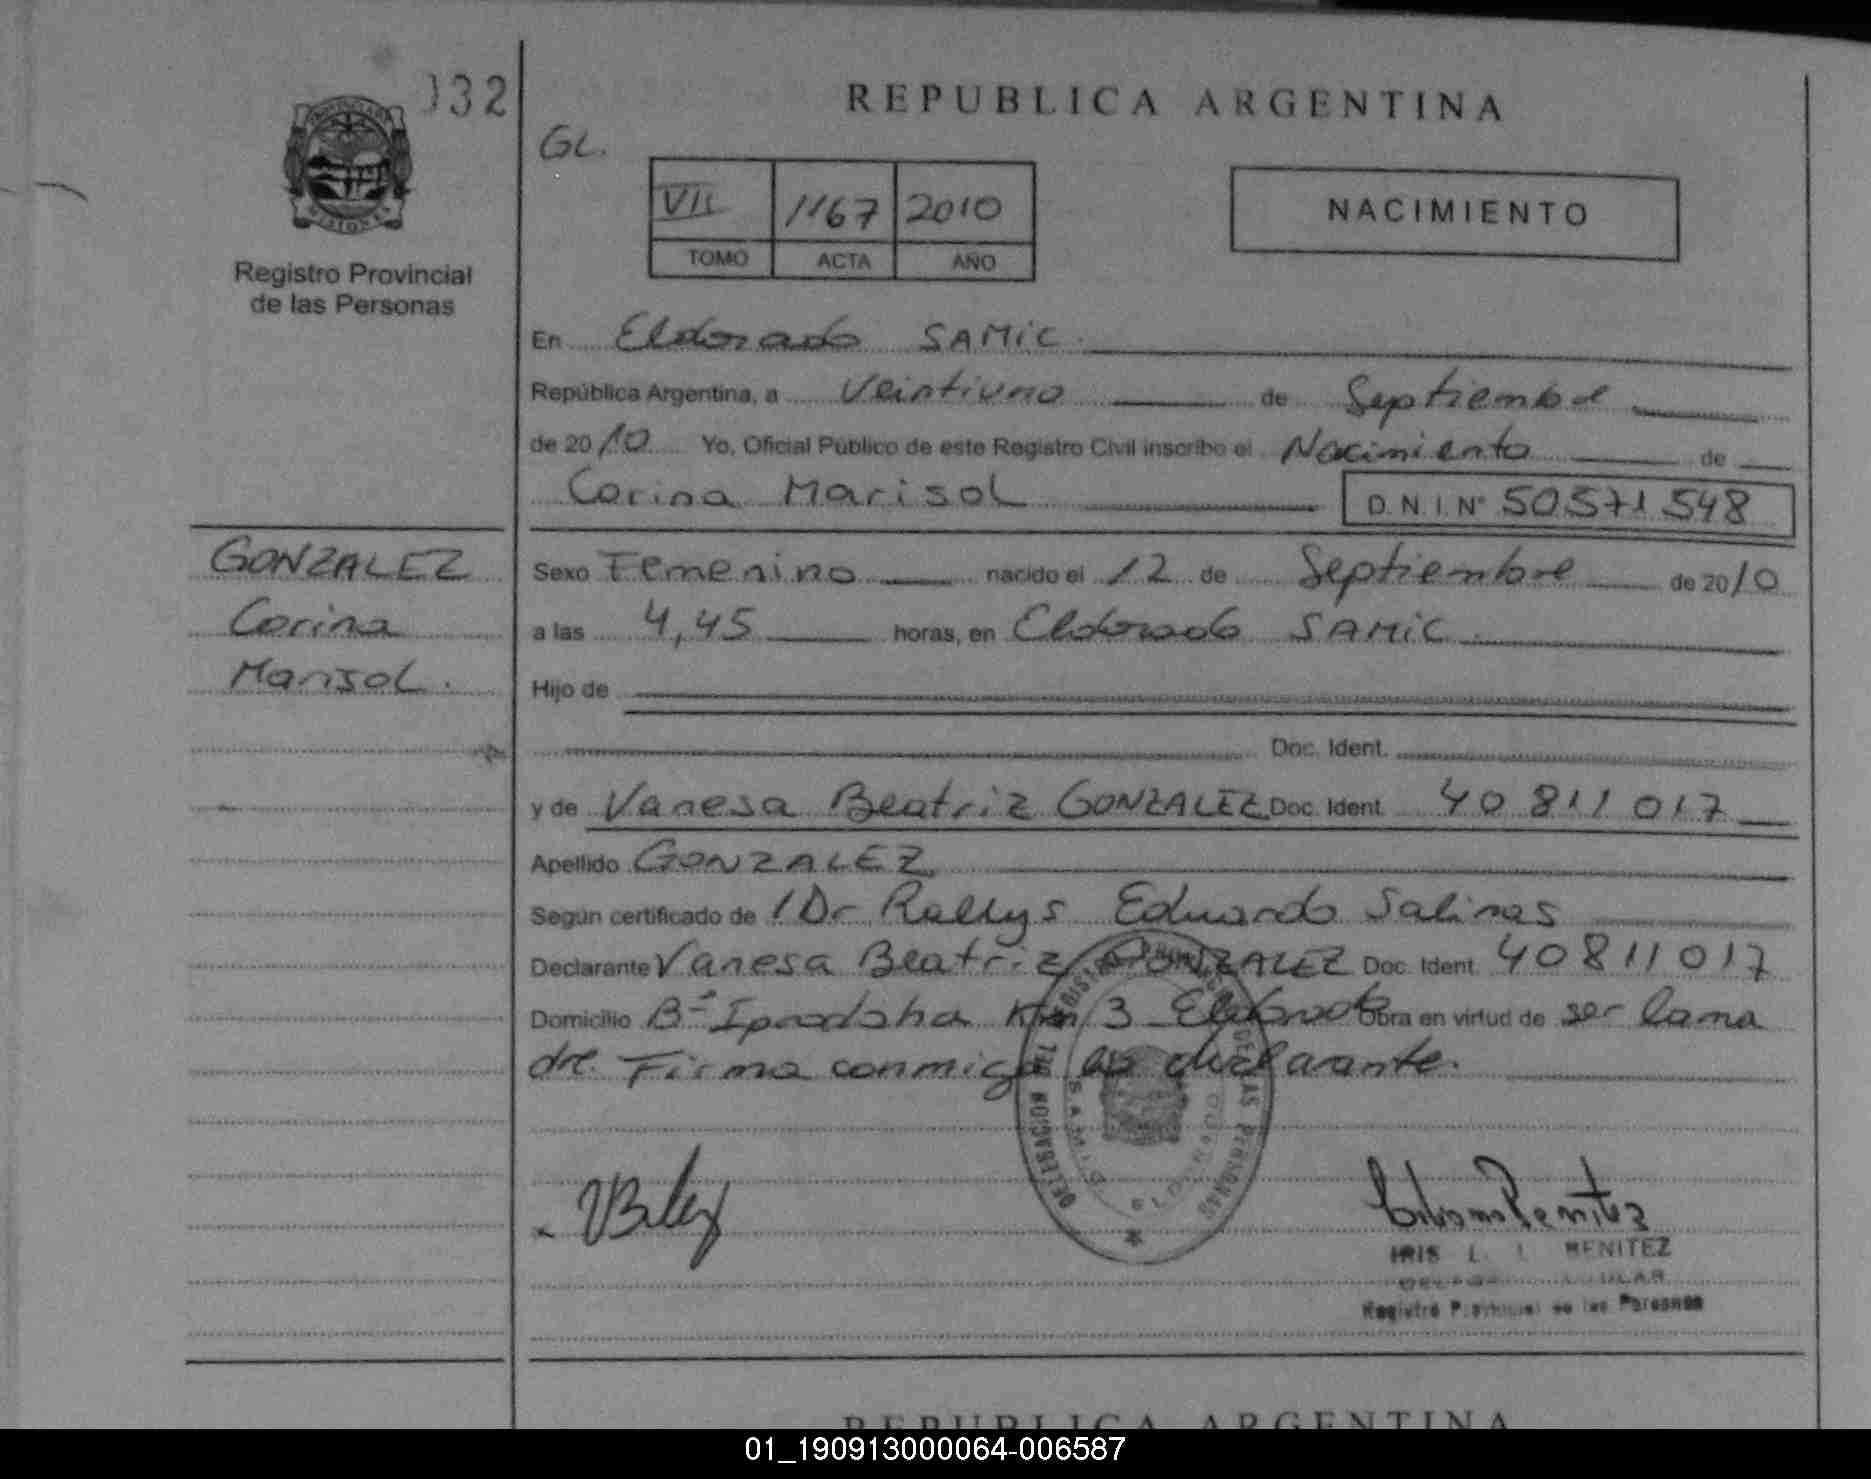 132
REPUBLICA ARGENTINA
GL.
VII 1167 2010
TOMO ACTA AÑO
NACIMIENTO
Registro Provincial
de las Personas
En Eldorado SAMIC.
República Argentina, a Veintiuno de Septiembre
de 2010 Yo, Oficial Público de este Registro Civil inscribo el Nacimiento de
Corina Marisol D.N.I. N° 50571548
GONZALEZ
Corina
Marisol.
Sexo Femenino nacido el 12 de Septiembre de 2010
a las 4,45 horas, en Eldorado SAMIC
Hijo de
Doc. Ident.
y de Vanesa Beatriz GONZALEZ Doc. Ident. 40 811 017
Apellido GONZALEZ
Según certificado de Dr Rallys Eduardo Salinas
Declarante Vanesa Beatriz GONZALEZ Doc. Ident. 40811017
Domicilio B° Iprodoha Km 3 Eldorado Obra en virtud de ser la ma
dre. Firma conmigo la declarante.
DELEGACION DEL REGISTRO PROVINCIAL DE LAS PERSONAS
ELDORADO
IRIS L. BENITEZ
Registro Provincial de las Personas
REPUBLICA ARGENTINA
01_190913000064-006587